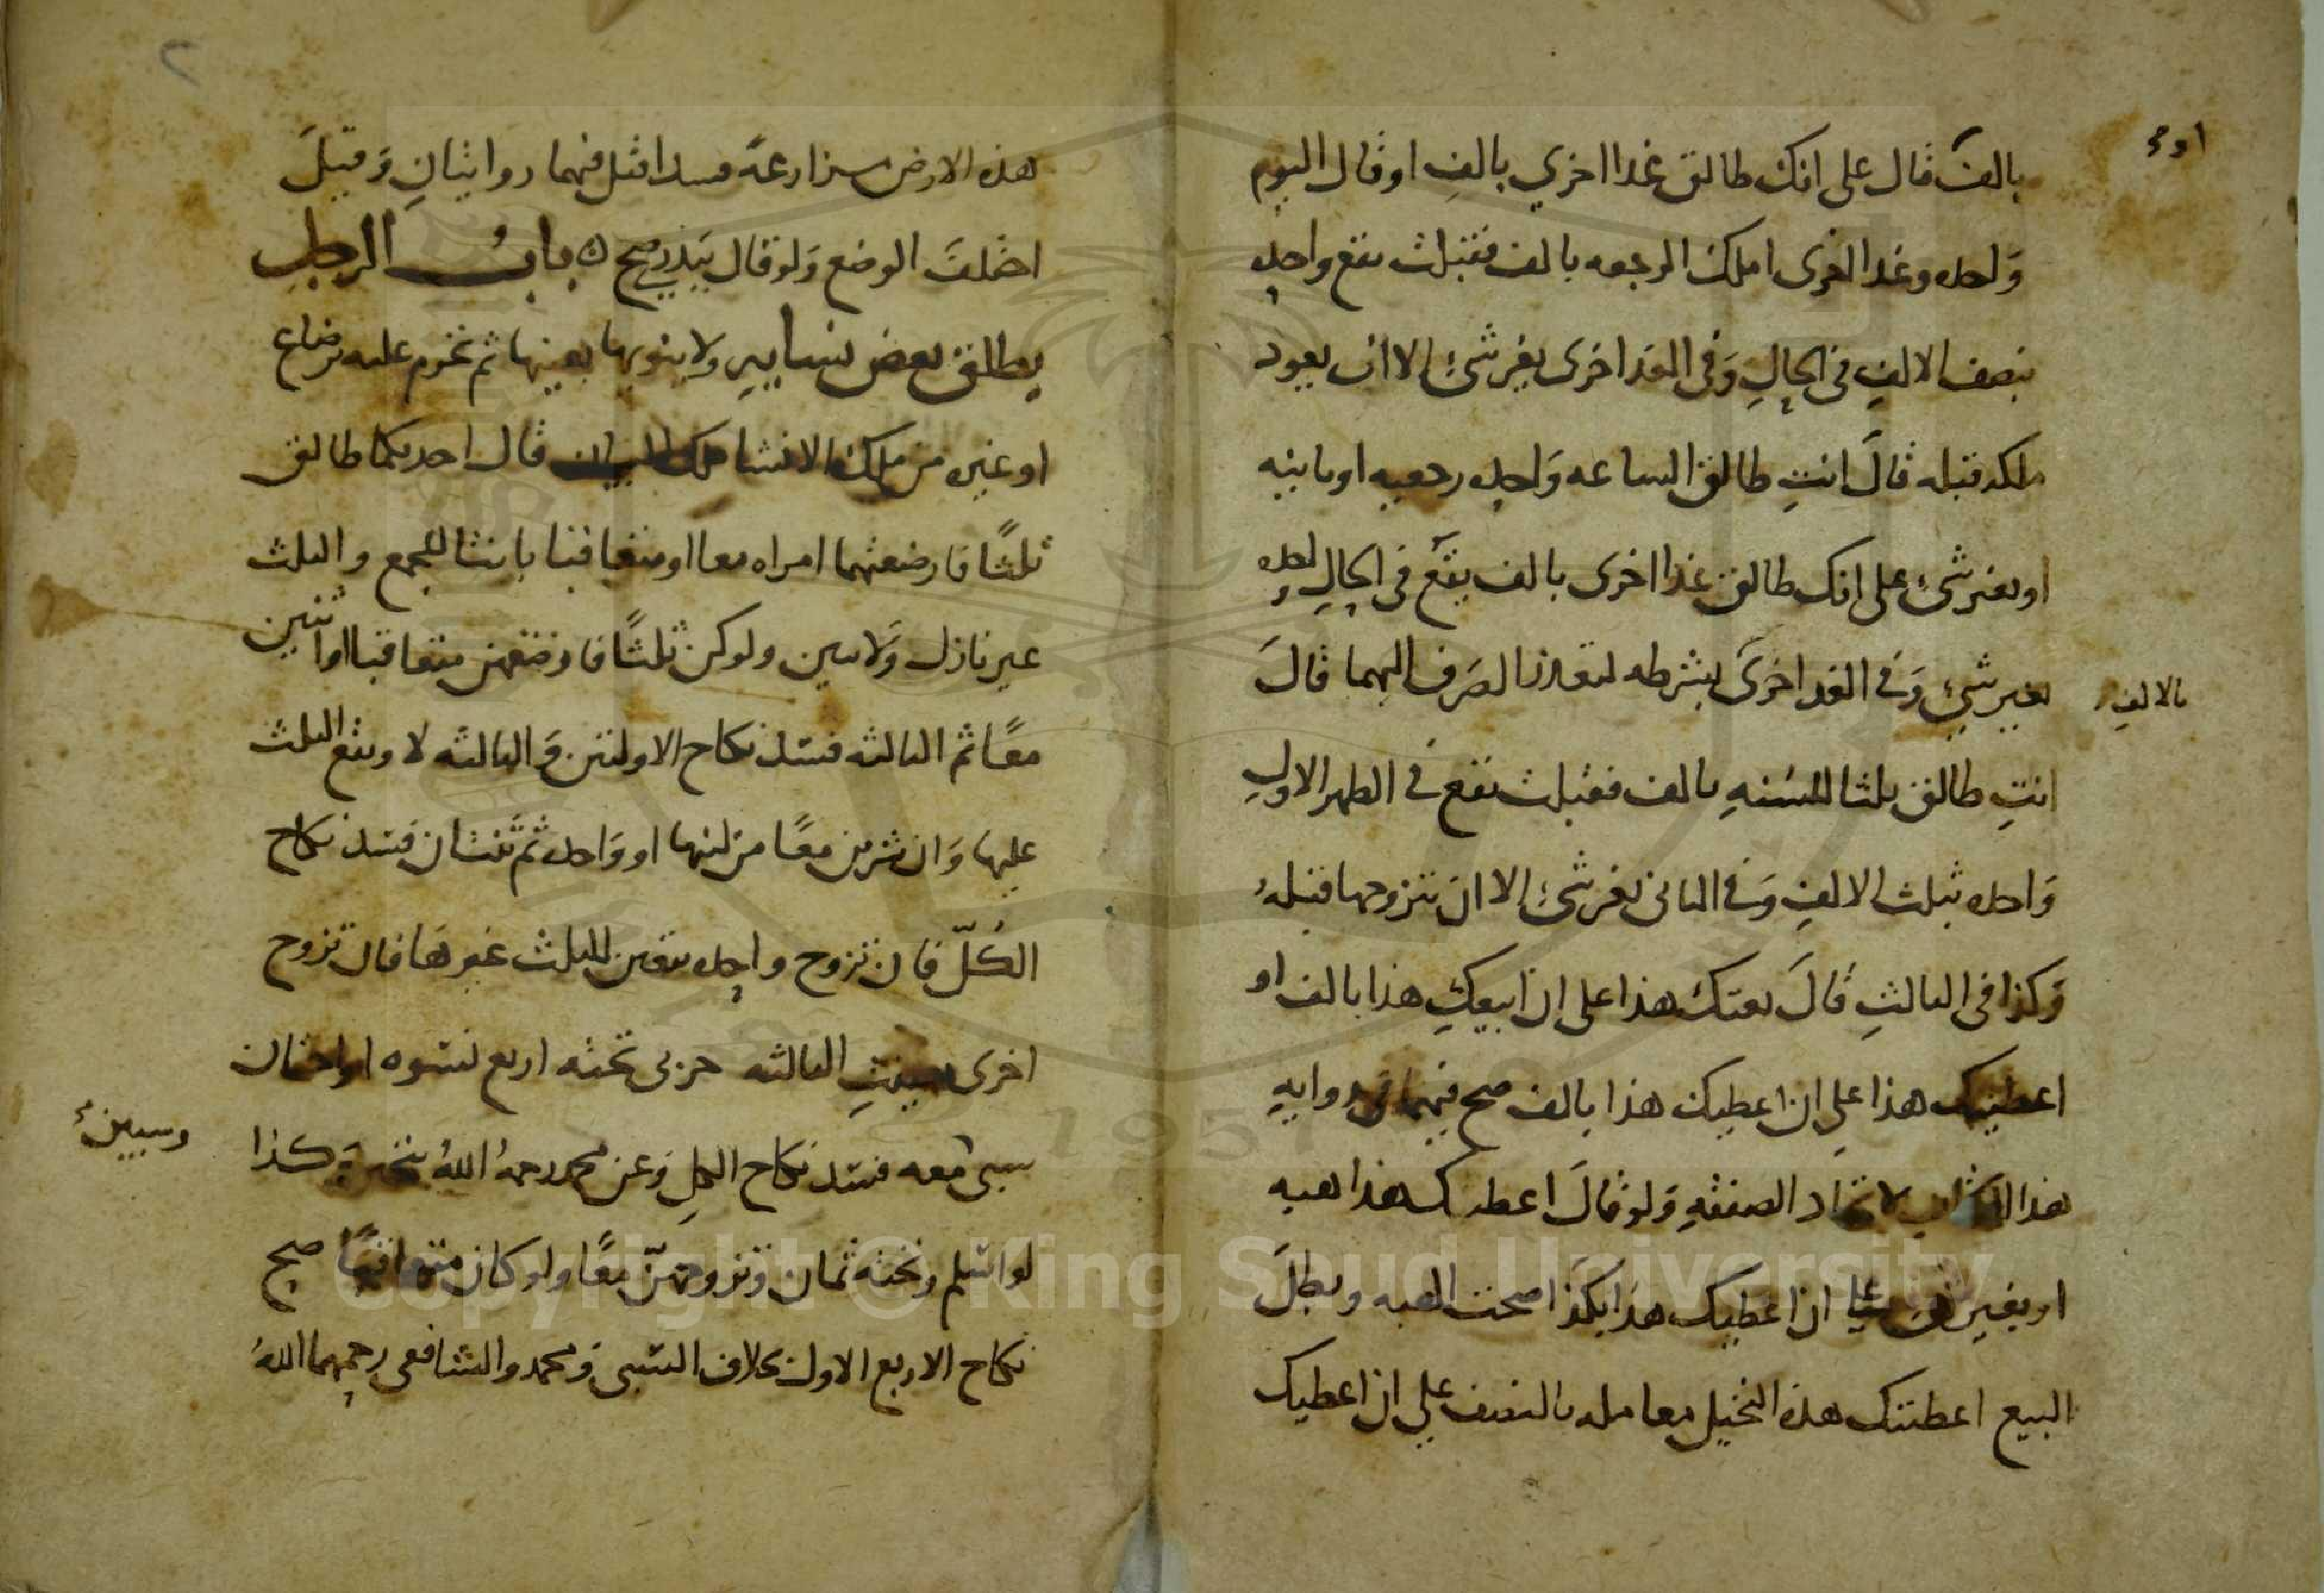 اوء
بالف قال على انك طالق غدا اخري بالف او قال اليوم
واحده وغدا اخرى املك الرجعه بالف فقبلت تقع واحده
بنصف الالف في الحال وفي الغد اخرى بغير شئ الا ان يعود
ملكه قبله قال انت طالق الساعه واحده رجعيه او باينه
او بغير شئ على انك طالق غدا اخرى بالف يقع في الحال واحده
بغير شئ وفي الغد اخرى بشرطه لتعذر الصرف اليهما قال
بالالف
انت طالق ثلثا للسنه بالف فقبلت تقع في الطهر الاول
واحده بثلث الالف وفي الثاني بغير شئ الا ان يتزوجها قبله
وكذا في الثالث قال بعتك هذا على ان ابيعك هذا بالف او
اعطيتك هذا على ان اعطيك هذا بالف صح فيهما في روايه
هذا الكتاب لاتحاد الصفقه ولو قال اعطيتك هذا هبه
او بغير شئ على ان اعطيك هذا بكذا صحت الهبه وبطل
البيع اعطيتك هذه النخيل معامله بالنصف على ان اعطيك
٢
هذه الارض مزارعة فسدا قيل فيهما روايتان وقيل
اختلف الوضع ولو قال ببذري صح ه باب الرجل
يطلق بعض نسايه ولا ينويها بعينها ثم تحرم عليه برضاع
او غيره من ملك الانشا ملك البيان قال احديكما طالق
ثلثا فارضعتهما امراه معا او متعاقبا بانتا للجمع والثلث
غير نازل ولا يبين ولو كن ثلثا فارضعتهن متعاقبا او اثنتين
معا ثم الثالثه فسد نكاح الاولتين والثالثه لا ويقع الثلث
عليها وان شربن معا من لبنها او واحده ثم ثنتان فسد نكاح
الكل فان تزوج واحده يتعين للثلث غيرها فان تزوج
اخرى تعينت الثالثه حربي تحته اربع نسوه او اختان
سبى معه فسد نكاح الكل وعن محمد رحمه الله يتخير وكذا
وسبين
لو اسلم وتحته ثمان وتزوجهن معا ولو كان متعاقبا صح
نكاح الاربع الاول بخلاف السبي ومحمد والشافعي رحمهما الله
Copyright © King Saud University
1957